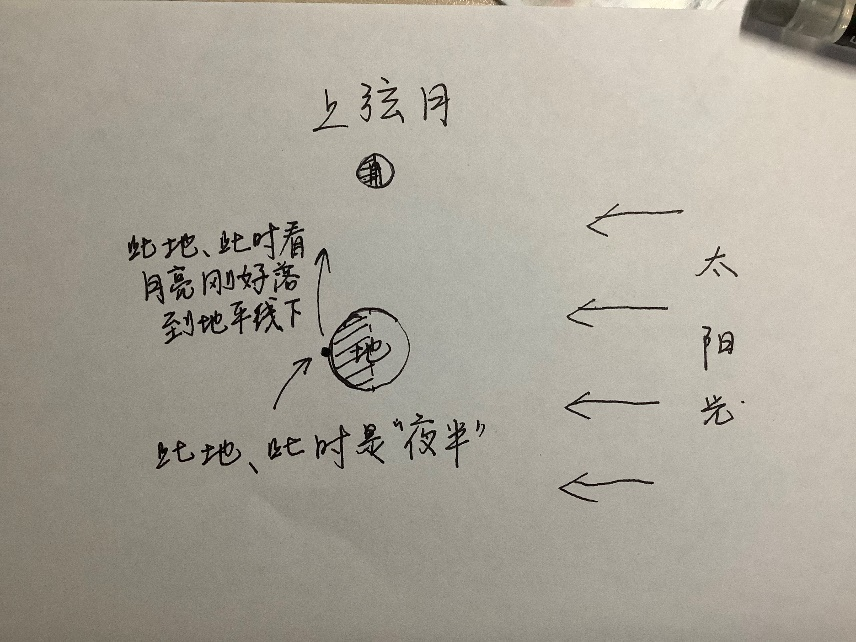 上弦月
此地、此时看
月亮刚好落
到地平线下
地
此地、此时是“夜半”
太
阳
光